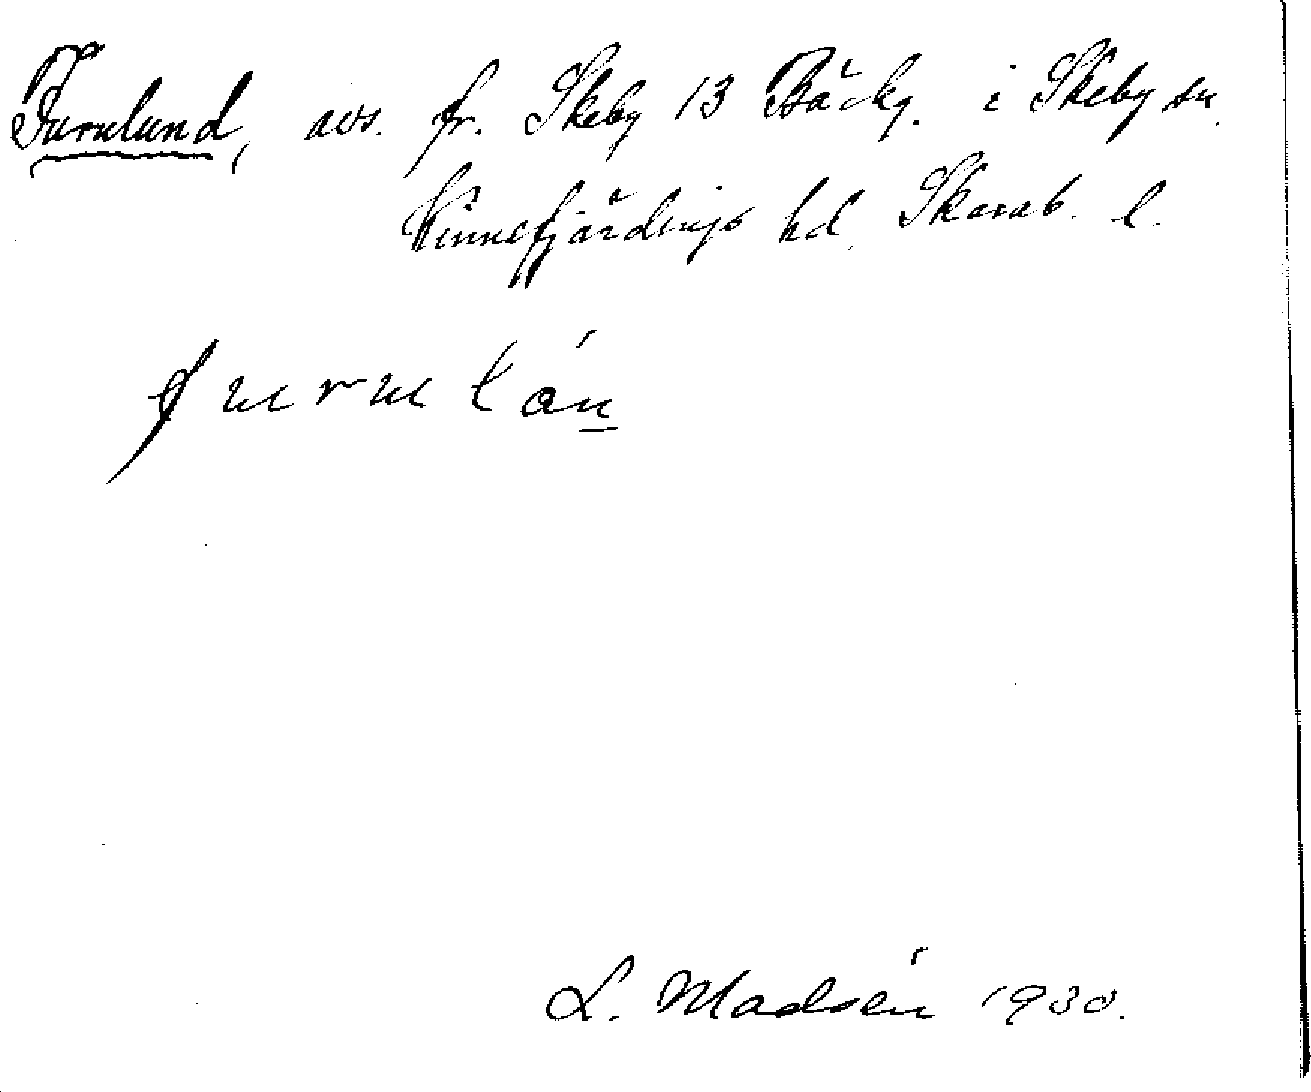 Furulund, avs. fr. Skeby 13 Bäckg. i Skeby sn.
Kinnefjärdings hd. Skarab. l.
L. Madsén 1930.